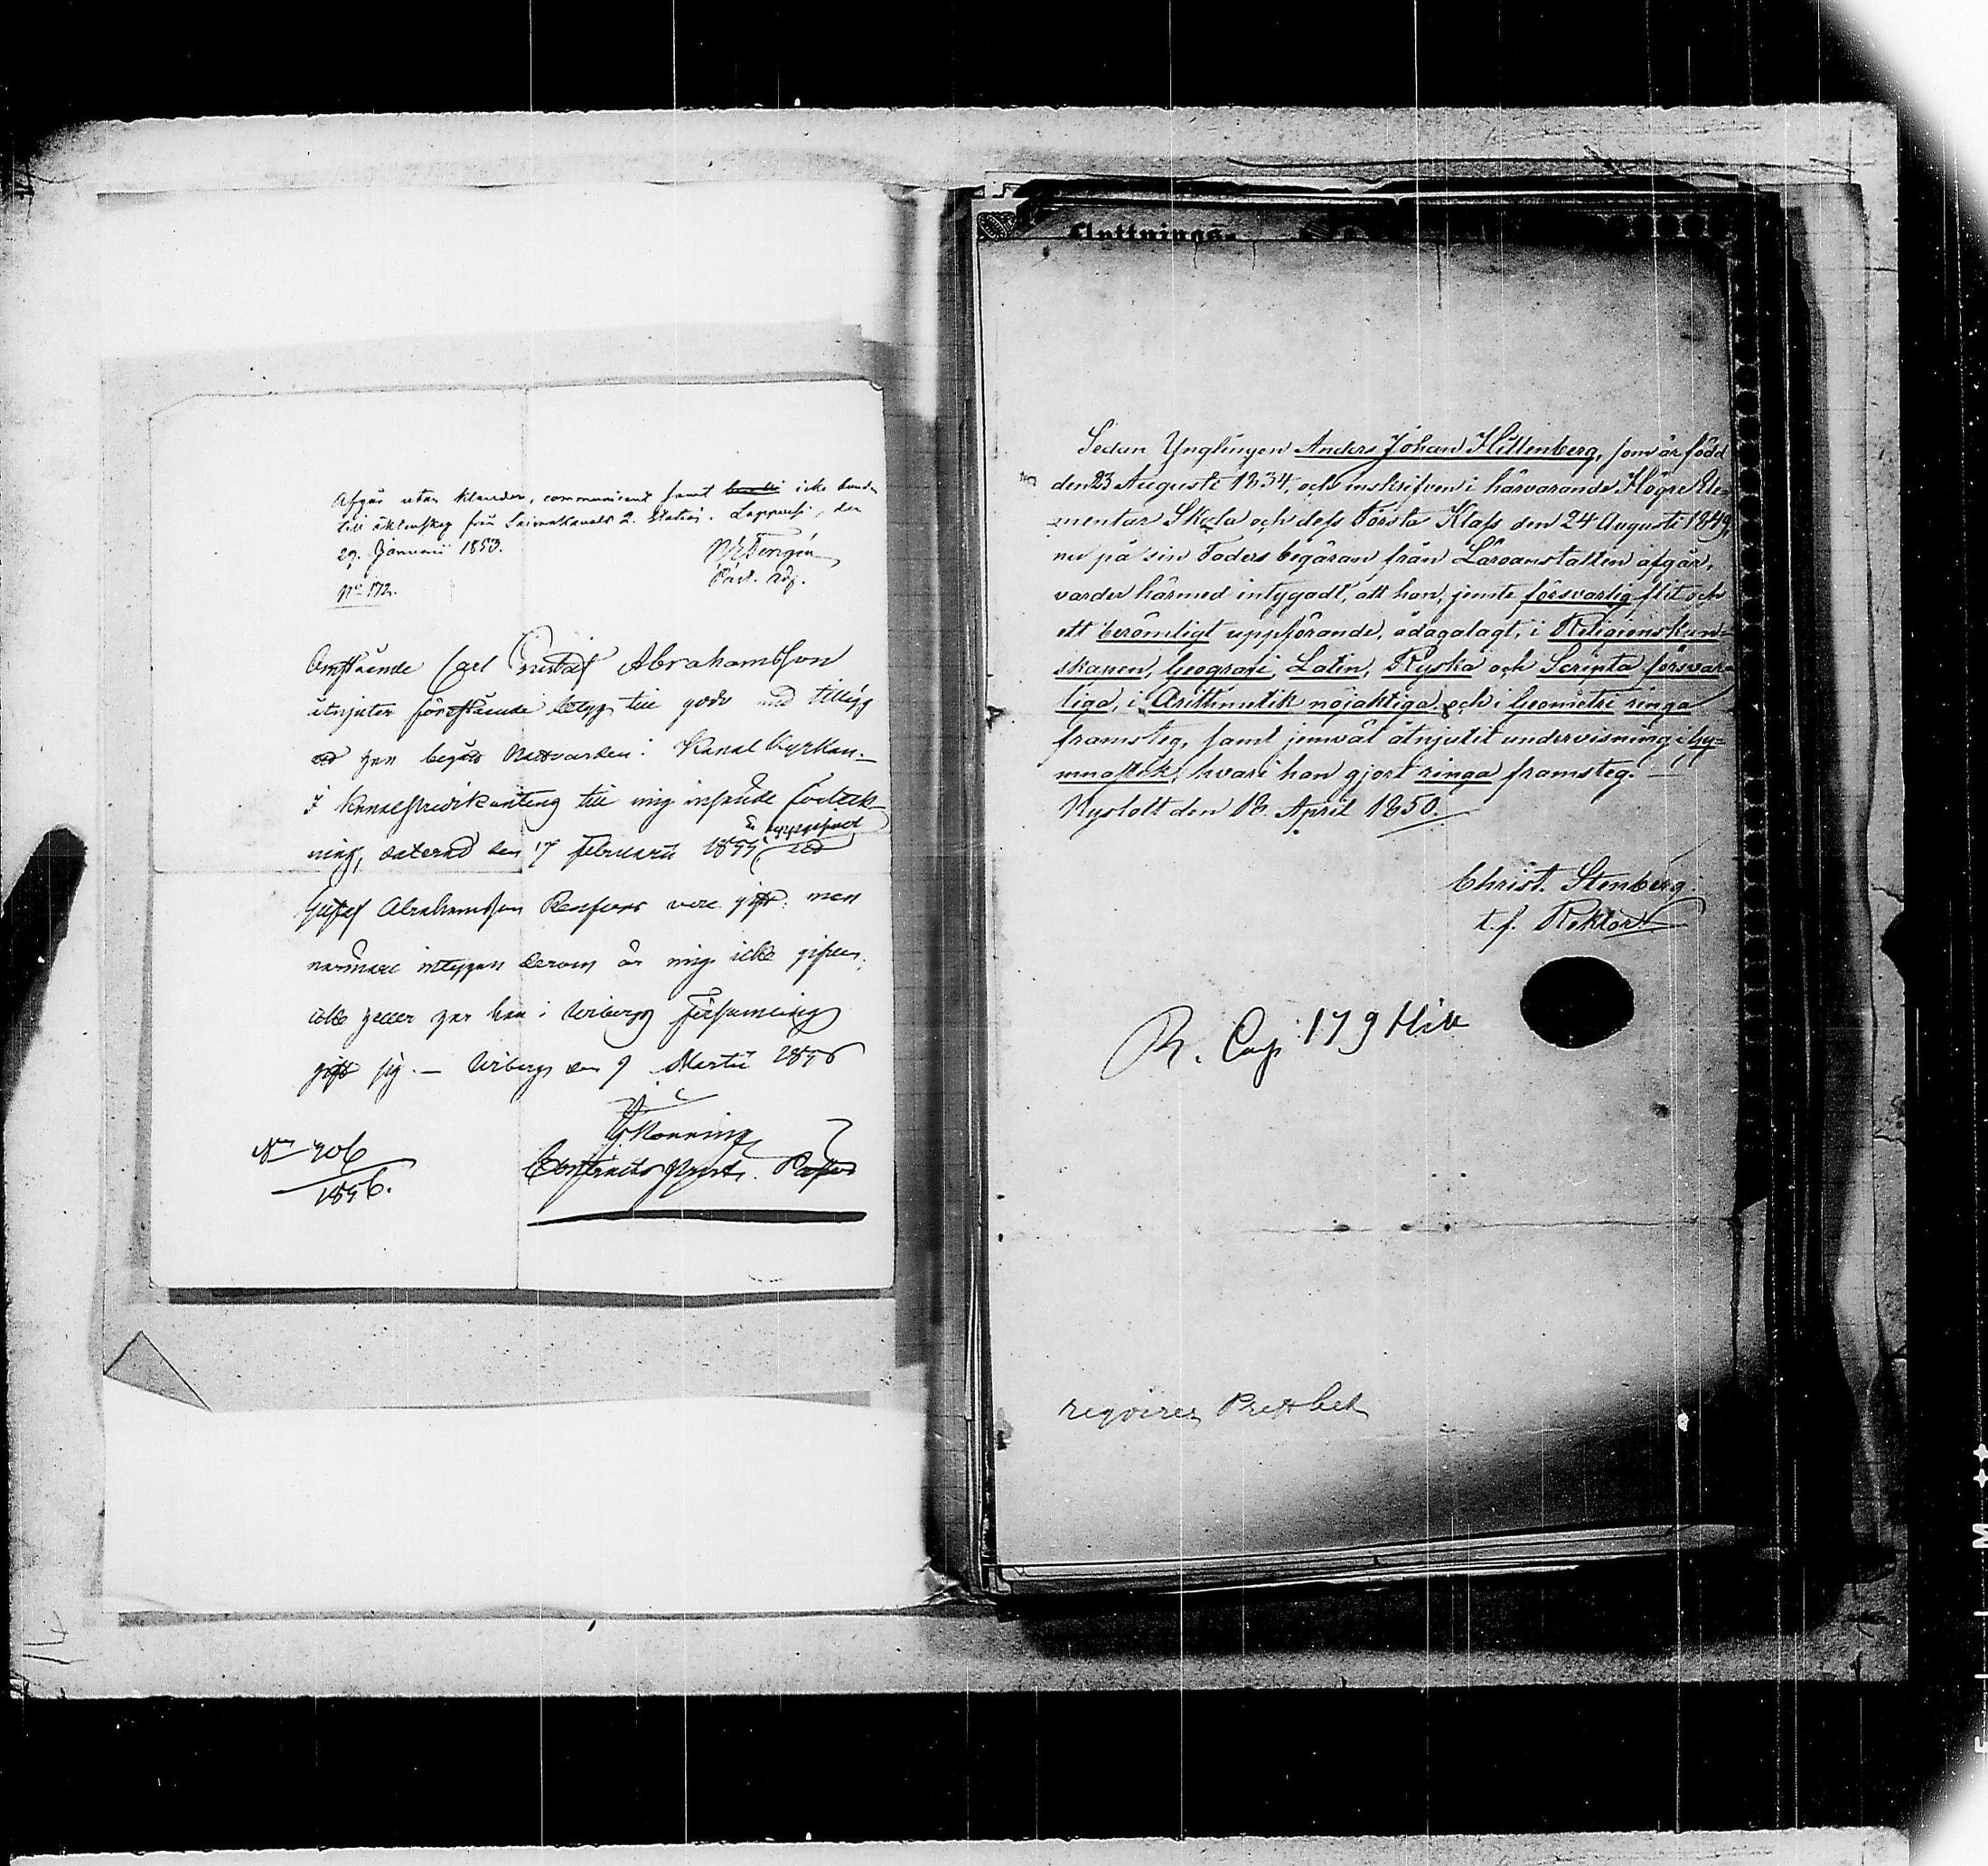 Afgår utan klander, communicant samt icke bunden
till äktenskap från Saimakanals 2. station. Lappvesi, den
29. Januarii 1853.
Past. adj.
No 172.
Omstående Carl Gustaf Abrahamsson
åtnjuter förestående betyg till godo med tillägg
han begått Nattvarden i Kanal Kyrkan.
I Kanalpredikanteng till mig insände förteck-
ning, daterad den 17 Februarii 1855 är uppgifvet
Gustaf Abrahamsson Renfors vara gift: men
närmare intygan derom är mig icke gifven,
icke heller har han i Wiborgs Församling
gift sig. — Wiborg den 9 Martii 1856
No 406
1856.
Fluttnings-
Sedan Ynglingen Anders Johan Hillenberg, som är född
den 23 Augusti 1834, och inskrifven i härvarande Högre Ele-
mentar Skola och dess Första Klass den 24 Augusti 1849,
nu på sin Faders begäran från Läroanstalten afgår,
varder härmed intygadt, att han, jemte försvarlig flit och
ett berömligt uppförande, ådagalagt, i Religionskun-
skapen, Geografi, Latin, Ryska och Scripta försvar-
liga, i Arithmetik nöjaktiga och i Geometri ringa
framsteg, samt jemväl åtnjutit undervisning i Gy-
mnastik, hvari han gjort ringa framsteg. —
Nyslott den 18 April 1850.
Christ. Stenberg.
t.f. Rektor
R. Cap: 179